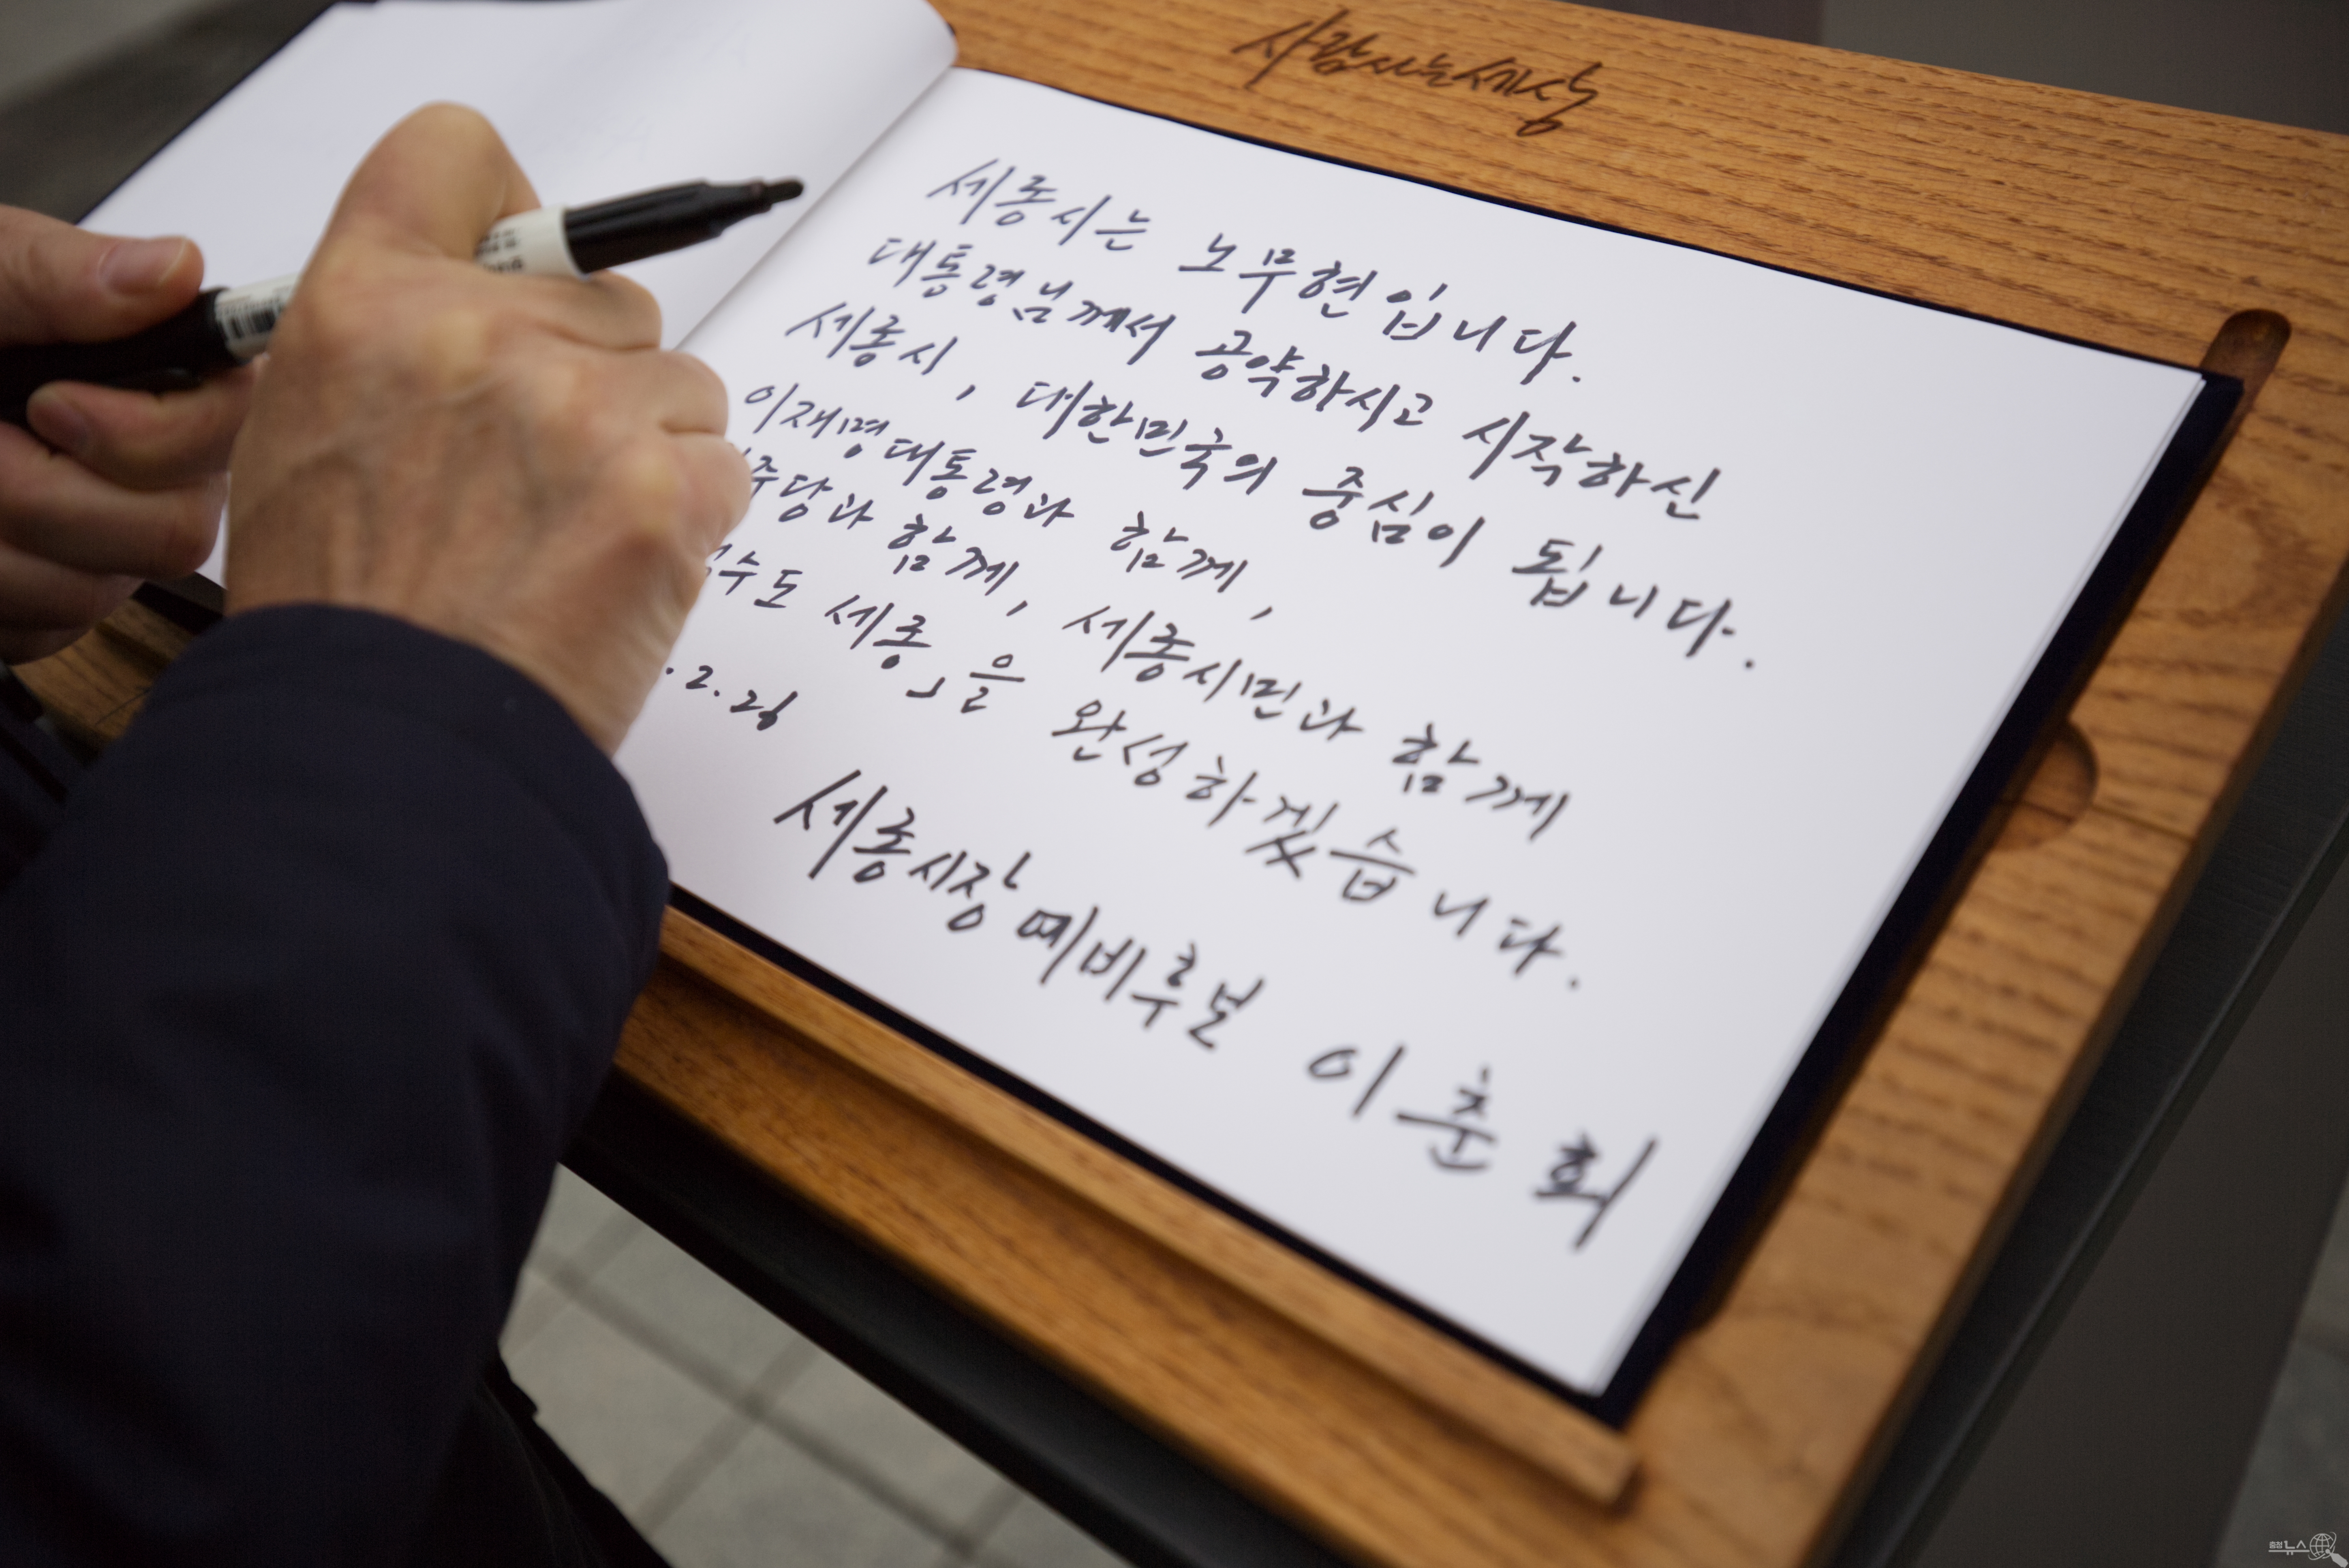 사람사는세상
세종시는 노무현입니다.
대통령님께서 공약하시고 시작하신
세종시, 대한민국의 중심이 됩니다.
이재명대통령과 함께,
주당과 함께, 세종시민과 함께
수도 세종」을 완성하겠습니다.
.2.26
세종시장 예비후보 이춘희
충청뉴스